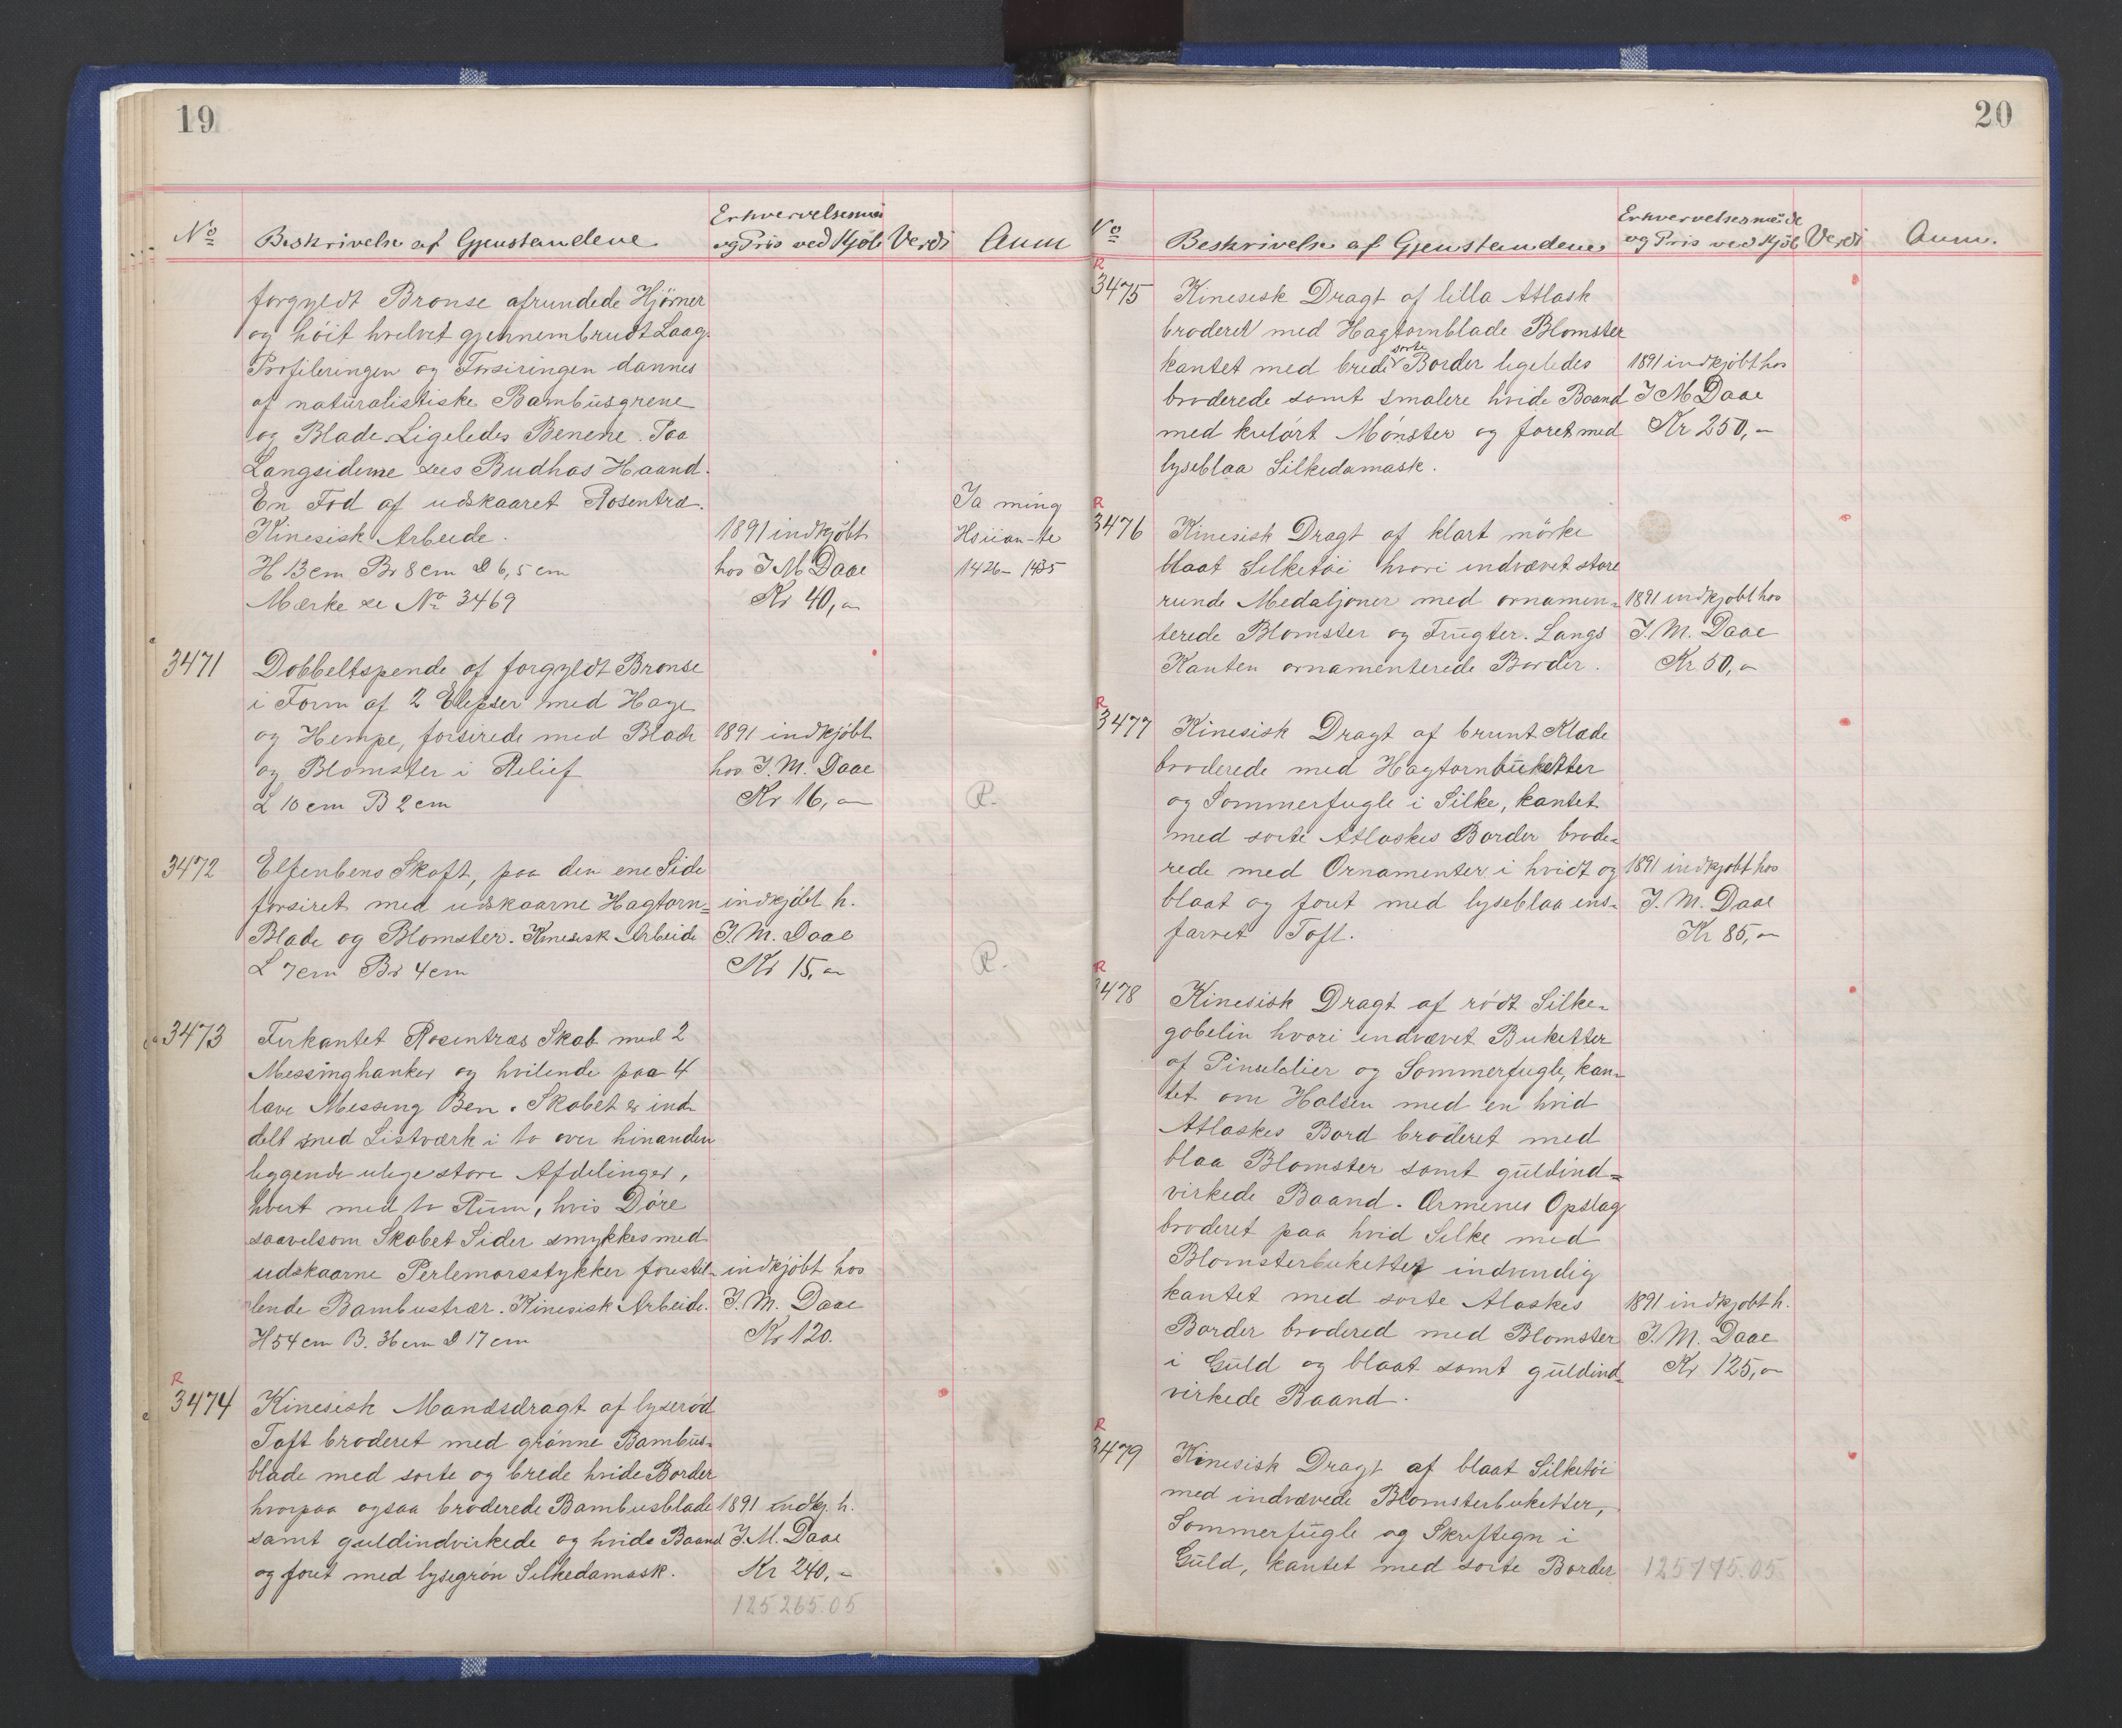 19
No Beskrivelse af Gjenstandene
Erhvervelsesmaa
og Pris ved Kjöb Verdi Anm
forgyldt Bronse afrundede Hjörner
og höit hvelvet gjennembrudt Laag.
Profileringen og Forsiringen dannes
af naturalistiske Bambusgrene
og Blade. Ligeledes Benene. Paa
Langsiderne sees Budhas Haand.
En Fod af udskaaret Rosentræ.
Kinesisk Arbeide.
H 13 cm Br 8 cm D 6,5 cm
Mærke se No 3469
1891 indkjöbt
hos J M Daae
Kr 40,-
Ta ming
Hsüan-te
1426-1435
3471 Dobbeltspende af forgyldt Bronse
i Form af 2 Elipser med Hage
og Hempe, forsirede med Blade
og Blomster i Relief
L 10 cm B 2 cm
1891 indkjöbt
hos J. M. Daae
Kr 16,-
R.
3472 Elfenbens Skaft, paa den ene Side
forsiret med udskaarne Hagtorn=
Blade og Blomster. Kinesisk Arbeide
L 7 cm Br 4 cm
indkjöbt h.
J. M. Daae
Kr 15,-
R.
3473 Firkantet Rosentræs Skab med 2
Messinghanker og hvilende paa 4
lave Messing Ben. Skabet er ind-
delt med Listværk i to over hinanden
liggende uligestore Afdelinger,
hvert med to Rum, hvis Döre
saavelsom Skabet Sider smykkes med
udskaarne Perlemorsstykker forestil-
lende Bambustrær. Kinesisk Arbeide.
H 54 cm B. 36 cm D 17 cm
indkjöbt hos
J. M. Daae
Kr 120.
R
3474 Kinesisk Mandsdragt af lyseröd
Taft broderet med grönne Bambus-
blade med sorte og brede hvide Border
hvorpaa ogsaa broderede Bambusblade
samt guldindvirkede og hvide Baand
og foret med lysegrön Silkedamask.
1891 indkj. h.
J. M. Daae
Kr 240,-
125265.05
20
No Beskrivelse af Gjenstandene
Erhvervelsesmaade
og Pris ved Kjöb Verdi Anm.
R
3475 Kinesisk Dragt af lilla Atlask
broderet med Hagtornblade Blomster
kantet med brede sorte Border ligeledes
broderede samt smalere hvide Baand
med kulört Mönster og foret med
lyseblaa Silkedamask.
1891 indkjöbt hos
J M Daae
Kr 250,-
R
3476 Kinesisk Dragt af klart mörke
blaat Silketöi hvori indvævet store
runde Medaljoner med ornamen-
terede Blomster og Frugter. Langs
Kanten ornamenterede Border.
1891 indkjöbt hos
J. M. Daae
Kr. 50,-
R
3477 Kinesisk Dragt af brunt Klæde
broderede med Hagtornbuketter
og Sommerfugle i Silke, kantet
med sorte Atlaskes Border brode-
rede med Ornamenter i hvidt og
blaat og foret med lyseblaa ens-
farvet Taft.
1891 indkjöbt hos
J. M. Daae
Kr 85,-
R
3478 Kinesisk Dragt af rödt Silke-
gobelin hvori indvævet Buketter
af Pinældier og Sommerfugle, kan-
tet om Halsen med en hvid
Atlaskes Bord broderet med
blaa Blomster samt guldind=
virkede Baand. Ærmenes Opslag
broderet paa hvid Silke med
Blomsterbuketter indvendig
kantet med sorte Alaskes
Border brodered med Blomster
i Guld og blaat samt guldind-
virkede Baand.
1891 indkjöbt h.
J. M. Daae
Kr 125,-
R
3479 Kinesisk Dragt af blaat Silketöi
med indvævede Blomsterbuketter,
Sommerfugle og Skriftegn i
Guld, kantet med sorte Border
125775.05